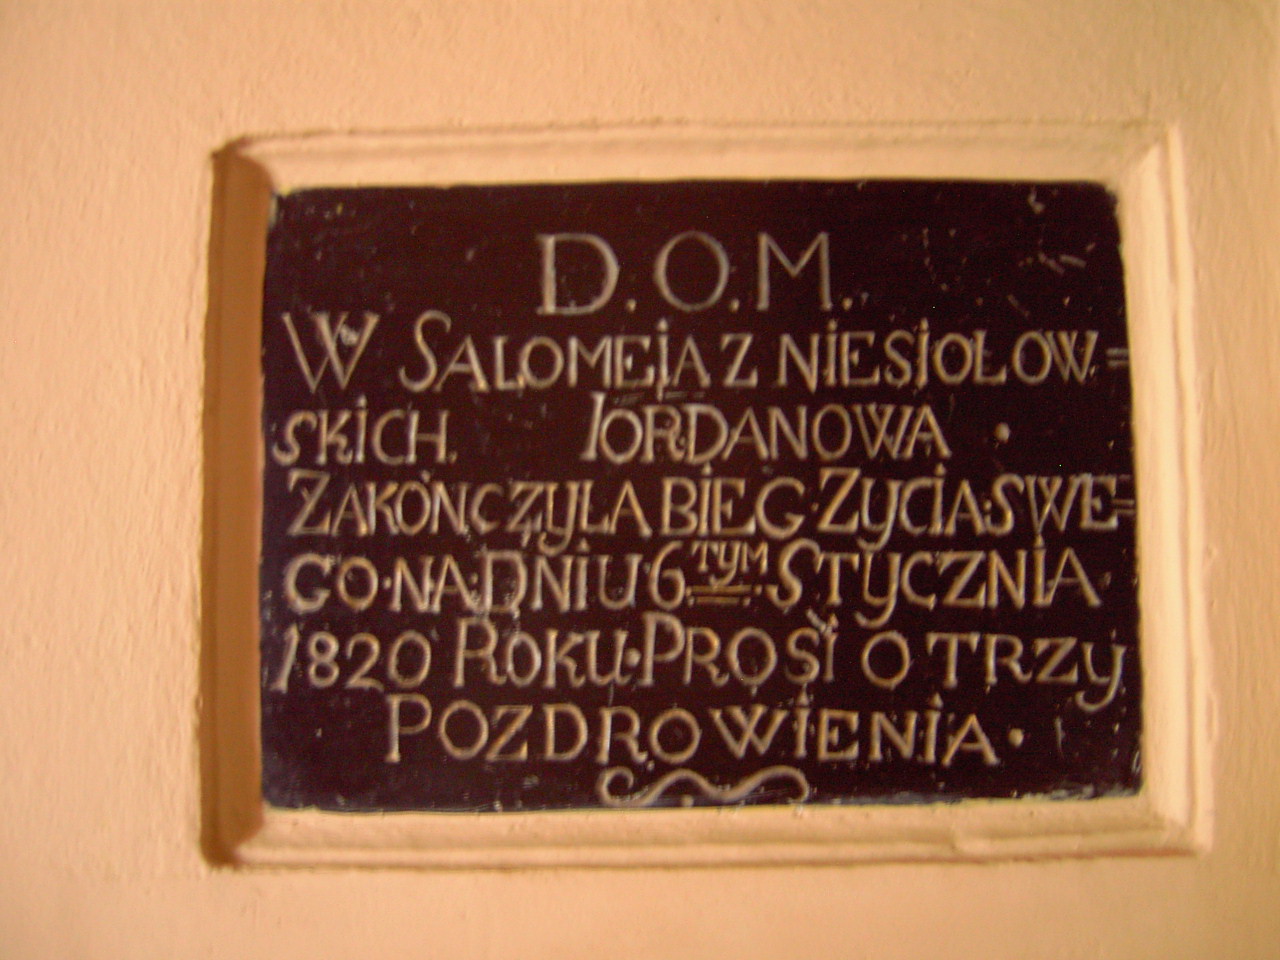 D.O.M.
W SALOMEIA Z NIESIOŁOW.=
SKICH. IORDANOWA
ZAKOŃCZYŁA BIEG·ZYCIA·SWE=
GO·NA·DNIU 6 TYM STYCZNIA
1820 ROKU·PROSI O TRZY
POZDROWIENIA·